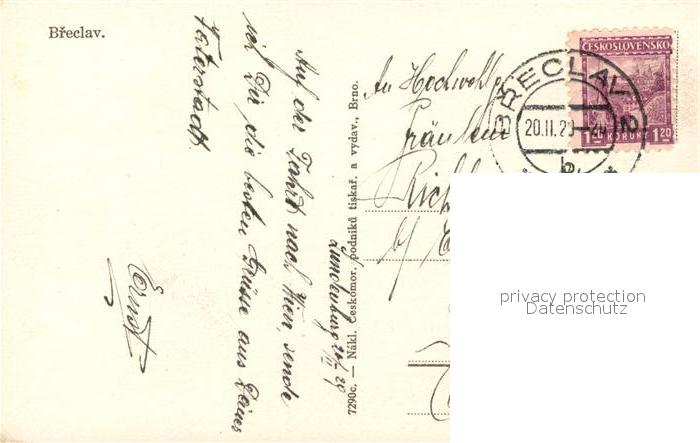 Břeclav.
Lundenburg 20/II 29
Auf der Fahrt nach Wien, sende
ich Dir die besten Grüsse aus Deiner
Vaterstadt.
Ernst
7290c. — Nákl. Českomor. podniků tiskař. a vydav., Brno.
An Hochwohlg
Fräulein
ČESKOSLOVENSKO
1.20 KORUNY 1.20
BŘECLAV 2
20.II.29
b
privacy protection
Datenschutz